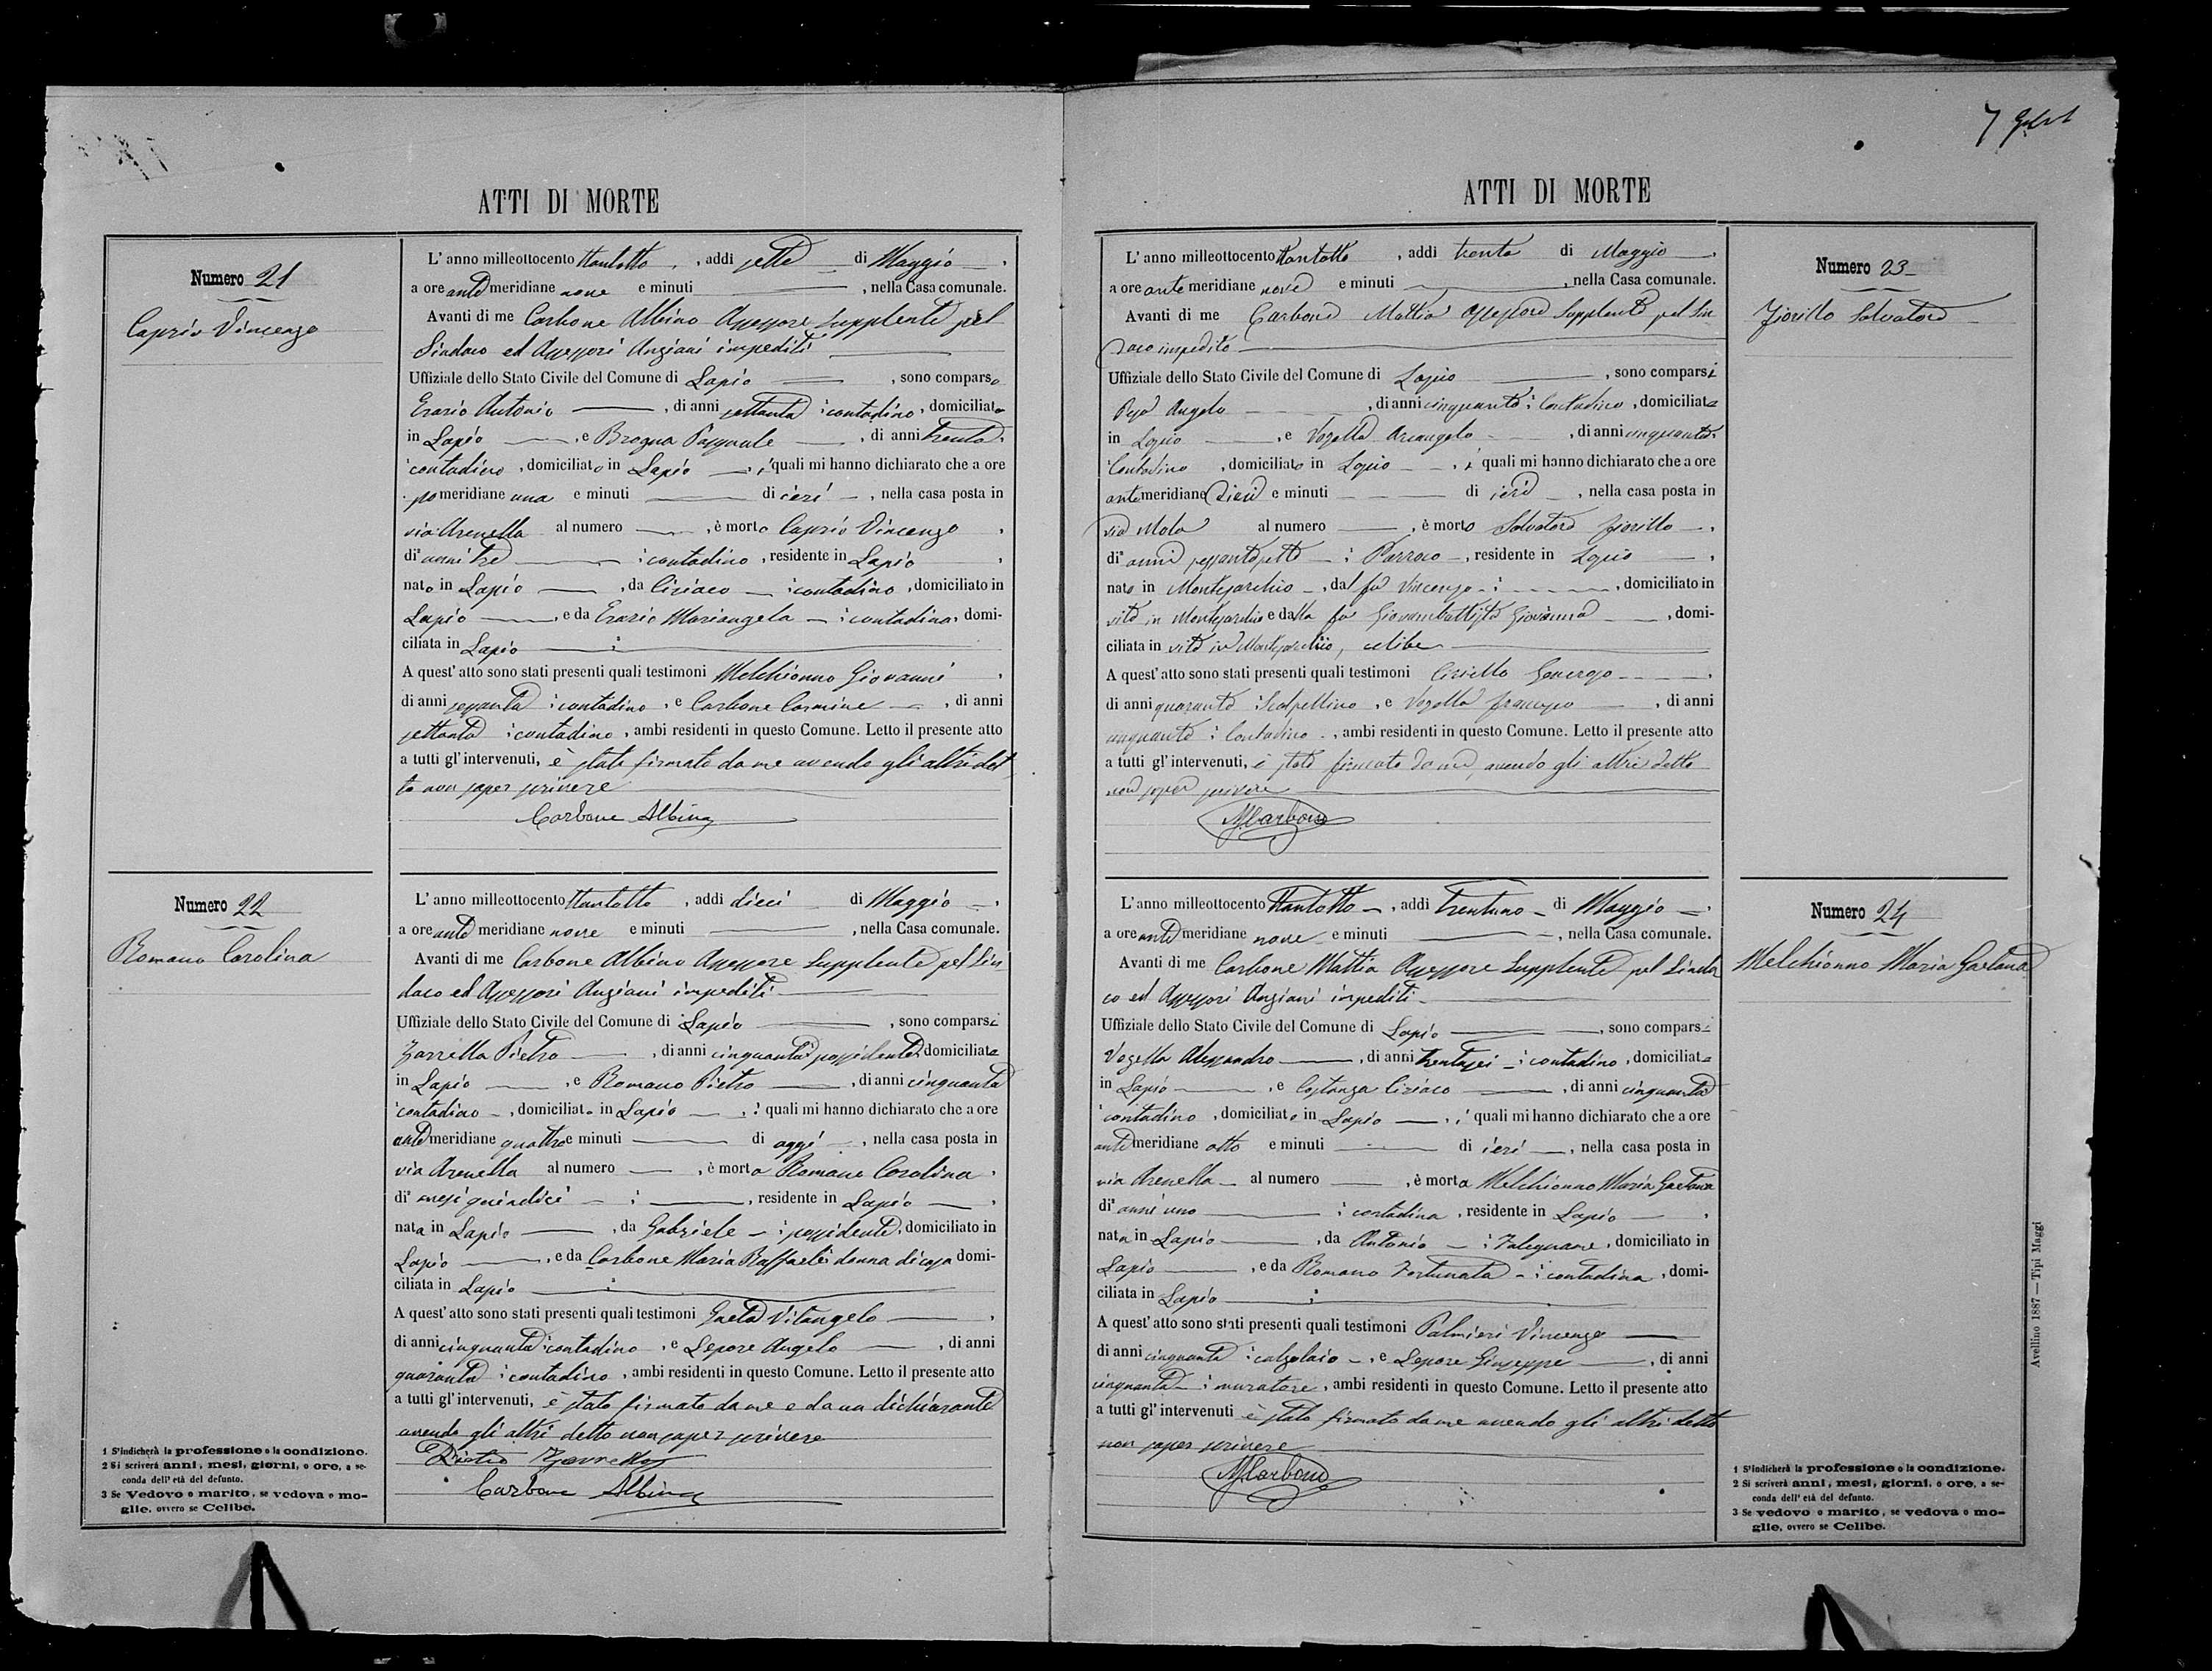 ATTI DI MORTE
Numero 21
Caprio Vincenzo
L'anno milleottocento ttantotto, addi sette di Maggio,
a ore ante meridiane nove e minuti , nella Casa comunale.
Avanti di me Carbone Albino Assessore Supplente pel
Sindaco ed Assessori Anziani impediti
Uffiziale dello Stato Civile del Comune di Lapio, sono comparso
Erario Antonio, di anni settanta, contadino, domiciliato
in Lapio, e Brogna Pasquale, di anni trenta,
contadino, domiciliato in Lapio, i quali mi hanno dichiarato che a ore
pomeridiane una e minuti di ieri, nella casa posta in
via Arenella al numero , è morto Caprio Vincenzo,
di anni tre contadino, residente in Lapio,
nato in Lapio, da Ciriaco contadino, domiciliato in
Lapio, e da Erario Mariangela contadina, domi-
ciliata in Lapio
A quest'atto sono stati presenti quali testimoni Melchionno Giovanni,
di anni sessanta contadino, e Carbone Carmine, di anni
settanta contadino, ambi residenti in questo Comune. Letto il presente atto
a tutti gl'intervenuti, è stato firmato da me avendo gli altri det
to non saper scrivere
Carbone Albino
Numero 22
Romano Carolina
L'anno milleottocento ttantotto, addi dieci di Maggio,
a ore ante meridiane nove e minuti , nella Casa comunale.
Avanti di me Carbone Albino Assessore Supplente pel Sin
daco ed Assessori Anziani impediti
Uffiziale dello Stato Civile del Comune di Lapio, sono comparsi
Zarrella Pietro, di anni cinquanta possidente, domiciliato
in Lapio, e Romano Pietro, di anni cinquanta
contadino, domiciliato in Lapio, i quali mi hanno dichiarato che a ore
ante meridiane quattro e minuti di oggi, nella casa posta in
via Arenella al numero , è morta Romano Carolina,
di mesi quindici , residente in Lapio,
nata in Lapio, da Gabriele possidente, domiciliato in
Lapio, e da Carbone Maria Raffaela donna di casa domi-
ciliata in Lapio
A quest'atto sono stati presenti quali testimoni Gaeta Vitangelo,
di anni cinquanta contadino, e Lepore Angelo, di anni
quaranta contadino, ambi residenti in questo Comune. Letto il presente atto
a tutti gl'intervenuti, è stato firmato da me e da un dichiarante
avendo gli altri detto non saper scrivere
Pietro Zarrella
Carbone Albino
1 S'indicherà la professione o la condizione.
2 Si scriverà anni, mesi, giorni, o ore, a se-
conda dell'età del defunto.
3 Se Vedovo o marito, se vedova o mo-
glie, ovvero se Celibe.
7
ATTI DI MORTE
Numero 23
Fiorillo Salvatore
L'anno milleottocento ttantotto, addi trenta di Maggio,
a ore ante meridiane nove e minuti , nella Casa comunale.
Avanti di me Carbone Mattia Assessore Supplente pel Sin
daco impedito
Uffiziale dello Stato Civile del Comune di Lapio, sono comparsi
Angelo, di anni cinquanta, Contadino, domiciliato
in Lapio, e Vozella Arcangelo, di anni cinquanta,
Contadino, domiciliato in Lapio, i quali mi hanno dichiarato che a ore
ante meridiane dieci e minuti di ieri, nella casa posta in
via Mola al numero , è morto Salvatore Fiorillo,
di anni sessantasette Parroco, residente in Lapio,
nato in Montesarchio, dal fu Vincenzo , domiciliato in
vita in Montesarchio e dalla fu Giovambattista Giovanna, domi-
ciliata in vita in Montesarchio, celibe
A quest'atto sono stati presenti quali testimoni Ciriello Generoso,
di anni quaranta Scalpellino, e Vozella Francesco, di anni
cinquanta Contadino, ambi residenti in questo Comune. Letto il presente atto
a tutti gl'intervenuti, è stato firmato da me, avendo gli altri detto
non saper scrivere
MCarbone
L'anno milleottocento ttantotto, addi trentuno di Maggio,
a ore ante meridiane nove e minuti , nella Casa comunale.
Avanti di me Carbone Mattia Assessore Supplente pel Sinda
co ed Assessori Anziani impediti
Uffiziale dello Stato Civile del Comune di Lapio, sono comparsi
Vozella Alessandro, di anni trentasei contadino, domiciliato
in Lapio, e Costanza Ciriaco, di anni cinquanta
contadino, domiciliato in Lapio, i quali mi hanno dichiarato che a ore
ante meridiane otto e minuti di ieri, nella casa posta in
via Arenella al numero , è morta Melchionno Maria Gaetana
di anni uno contadina, residente in Lapio,
nata in Lapio, da Antonio falegname, domiciliato in
Lapio, e da Romano Fortunata contadina, domi-
ciliata in Lapio
A quest'atto sono stati presenti quali testimoni Palmieri Vincenzo
di anni cinquanta calzolaio, e Lepore Giuseppe, di anni
cinquanta muratore, ambi residenti in questo Comune. Letto il presente atto
a tutti gl'intervenuti è stato firmato da me avendo gli altri detto
non saper scrivere
MCarbone
Numero 24
Melchionno Maria Gaetana
1 S'indicherà la professione o la condizione.
2 Si scriverà anni, mesi, giorni, o ore, a se-
conda dell'età del defunto.
3 Se vedovo o marito, se vedova o mo-
glie, ovvero se Celibe.
Avellino 1887 — Tipi Maggi